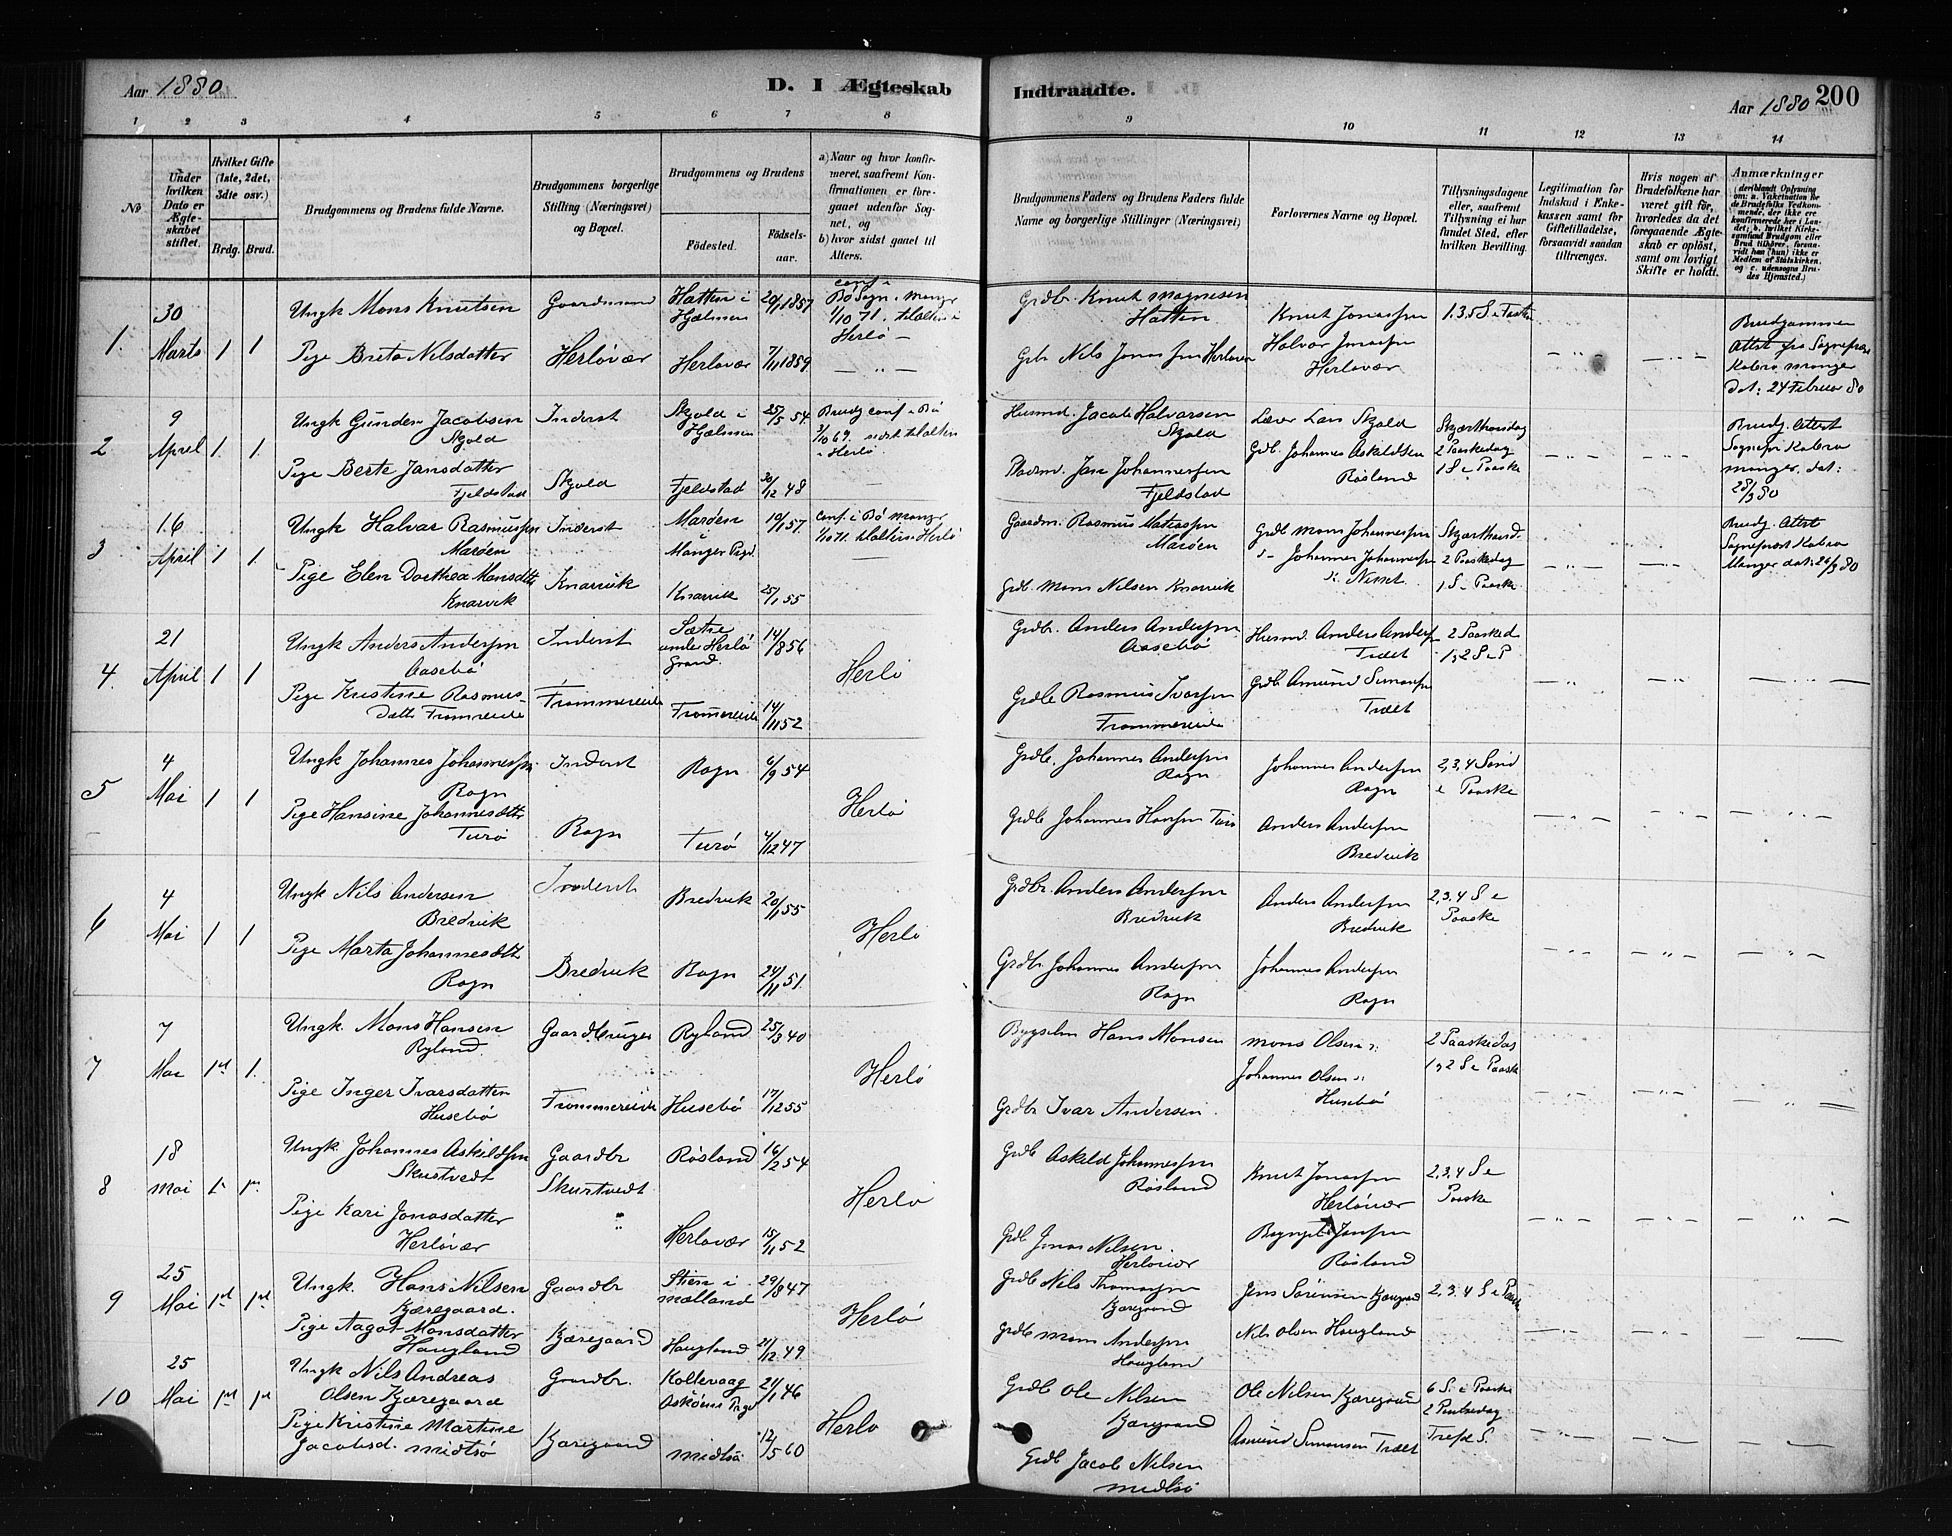 Aar 1880
D. I Ægteskab
Indtraadte.
Aar 1880 200
1 2 3 4 5 6 7 8 9 10 11 12 13 14
No
Under hvilken Dato er Ægteskabet stiftet.
Hvilket Gifte (1ste, 2det, 3die osv.)
Brdg. Brud.
Brudgommens og Brudens fulde Navne.
Brudgommens borgerlige Stilling (Næringsvei) og Bopæl.
Brudgommens og Brudens
Fødested.
Fødselsaar.
a) Naar og hvor konfirmeret, saafremt Konfirmationen er foregaaet udenfor Sognet, og
b) hvor sidst gaaet til Alters.
Brudgommens Faders og Brudens Faders fulde Navne og borgerlige Stillinger (Næringsvei)
Forlovernes Navne og Bopæl.
Tillysningsdagene eller, saafremt Tillysning ei har fundet Sted, efter hvilken Bevilling.
Legitimation for Indskud i Enkekassen samt for Giftetilladelse, forsaavidt saadan tiltrænges.
Hvis nogen af Brudefolkene har været gift før, hvorledes da det foregaaende Ægteskab er opløst, samt om lovligt Skifte er holdt.
Anmærkninger
1. 30 Marts 1 1
Ungk Mons Knutsen
Gaardmand
Hatten i Hjelmen
20/1 1857
conf i Bø Sogn i Manger 1/10 71. tilalters i Herlø
Grdb. Knut Magnesen Hatten
Knut Jonassen
1.3.5 S. i Faste
Brudgommen Attest fra Sognepræst Kobro Manger dat: 24 Februar 80
Pige Breta Nilsdatter
Herløvær
Herlovær
7/11 1859
Grb Nils Jonassen Herlovær
Halvor Jonassen Herlovær
2 9 April 1. 1.
Ungk Gunder Jacobsen Skjold
Inderst
Skjold i Hjelmen
25/5 54.
Brudg conf i Bø 3/10 69. sidst tilalters i Herlø
Husmd. Jacob Halvorsen Skjold
Lærer Lars Skjold
Skjærthorsdag
2 Paaskedag
1 S e Paaske
Brudg. Attest Sognepr Kobro Manger. dat: 28/3 80
Pige Berte Jansdatter Fjeldstad
Skjold
Fjeldstad
30/12 48
Jan Johannessen Fjeldstad
Grdb. Johannes Askildsen Røsland
3 16 April 1 1.
Ungk Halvar Rasmussen Marøen
Inderst
Marøen i Manger Pgd.
10/1 57.
Conf. i Bø Manger 1/10 71. tilalters i Herlø
Gaardm. Rasmus Mathiassen Marøen
Grdb Mons Johannessen
Skjærthorsd.
2 Paaskedag
1 S. e Paaske
Brudg. Attest Sognepræst Kobro Manger dat: 20/3 80
Pige Elen Dorthea Monsdtr Knarvik
Knarvik
Knarvik
25/1 55
Grdb. Mons Nilsen Knarvik
Johannes Johannessen
4. 21 April 1 1
Ungk Anders Andersen Aasebø
Inderst
Sætre under Herlø Grund.
14/8 56
Herlø
Grdbr. Anders Andersen Aasebø
Husmd. Anders Andersen Træet
2 Paasked
1, 2 S e P
Pige Kristine Rasmusdatter Fromreide
Frommereide
Frommereide
14/11 52
Grdb Rasmus Ivarsen Frommereide
Grdb Amund Simonsen Træet
5 4 Mai 1 1
Ungk Johannes Johannessen Rogn
Inderst
Rogn
6/9 54
Herlø
Grdb. Johannes Andersen Rogn
Johannes Andersen Rogn
2, 3, 4 Sønd e Paaske
Pige Hansine Johannesdtr Turø
Rogn
Turø
4/12 47
Grdb Johannes Hansen Turø
Anders Andersen Bredvik
6 4 Mai 1 1
Ungk Nils Andersen Bredvik
Inderst
Bredvik
20/1 55
Herlø
Grdbr. Anders Andersen Bredvik
Anders Andersen Bredvik
2, 3, 4 S e Paaske
Pige Marta Johannesdtr Rogn
Bredvik
Rogn
24/11 51.
Grdbr. Johannes Andersen Rogn
Johannes Andersen Rogn
7 7 Mai 1st 1.
Ungk. Mons Hansen Ryland.
Gaardbruger
Ryland
25/3 40
Herlø
Bygselm Hans Monsen
Mons Olsen
2 Paaskedag
1, 2 S e Paaske
Pige Inger Ivarsdatter Husebø
Frommereide
Husebø
17/12 55
Grdbr Ivar Andersen
Johannes Olsen Husebø
8 18 Mai
Ungk. Johannes Askildsen Skurtvedt
Gaardbr Skurtvedt
Røsland
16/2 54
Herlø
Grdb Askild Johannessen Røsland
Knut Jonassen Herløvær
2, 3, 4 S e Paaske
Pige Kari Jonasdatter Herløvær
Herlovær
15/11 52
Grdb Jonas Nilsen. Herlovær
Jansen Røsland
9 25 Mai 1st 1st
Ungk. Hans Nilsen Kjæregaard.
Gaardbr
Stien i Mælland
29/8 47
Herlø
Grdb Nils Thomassen Kjæregaard
Jens Sørensen Kjæregaard
2, 3, 4 S e Paaske
Pige Aagot Monsdatter Haugland
Kjæregaard
Haugland
21/12 49
Grdb Mons Andersen Haugland
Nils Olsen Haugland
10 25 Mai 1st 1st
Ungk Nils Andreas Olsen Kjæregaard
Gaardbr.
Kollevaag Askøens Pgd
21/1 46
Herlø
Grdb Ole Nilsen Kjæregaard
Ole Nilsen Kjæregaard
6 S. e Paaske
2 Pintsedag
Tref S.
Pige Kristine Martine Jacobsd. Midtsø
Kjæregaard
Midtsø
12/5 60
Grdb Jacob Nilsen Midtsø
Asmund Simonsen Træet